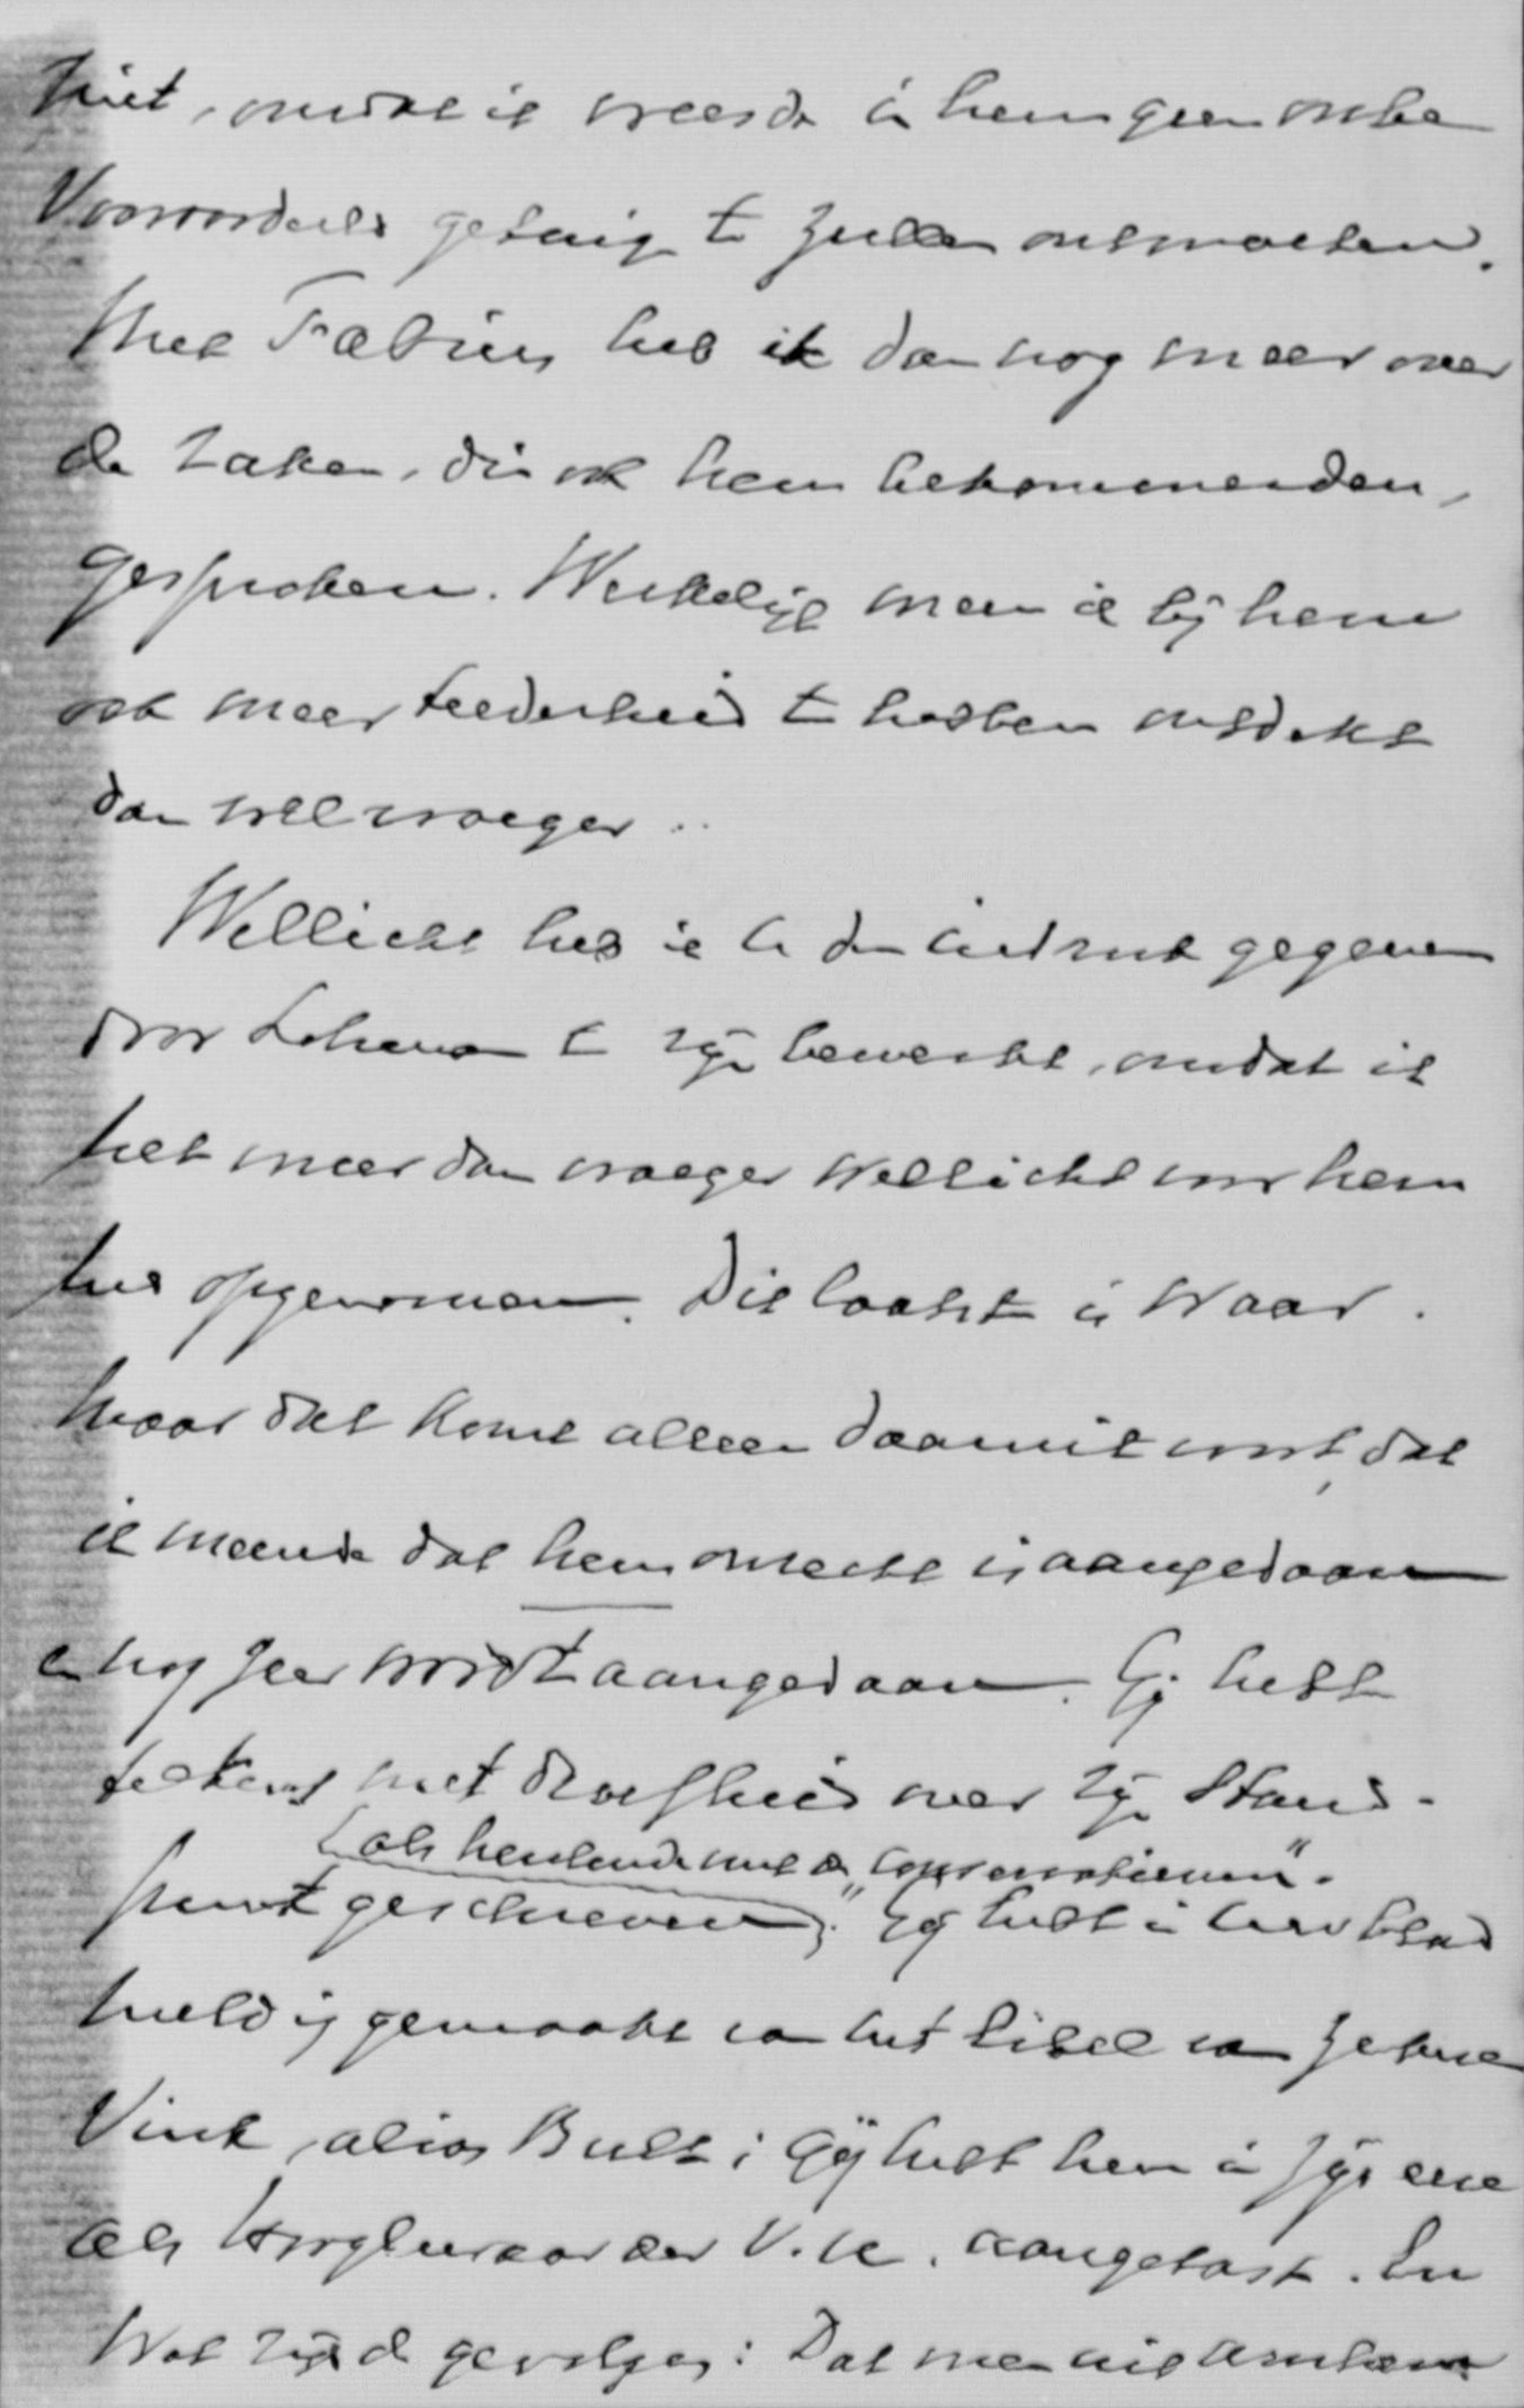 niet, omdat ik vreesde in hem geen onbe
vooroordeeld getuige te zullen ontmoeten.
Met Fabius heb ik dan nog meer over
de zaken, die ook hem bekommerden,
gesproken. Werkelijk meen ik bij hem
ook meer teederheid te hebben ontdekt
dan wel vroeger..
Wellicht heb ik U den indruk gegeven
door Lohman te zijn bewerkt, omdat ik
het meer dan vroeger wellicht voor hem
heb opgenomen. Dit laatste is waar.
Maar dat komt alleen daaruit voort, dat
ik meende dat hem onrecht is aangedaan
en nog zeer wordt aangedaan. Gij hebt
telkens met droefheid over zijn stand-
als heulende met de "conservatieven".
punt geschreven. Gij hebt in Uw blad
melding gemaakt van het libel van zekere
Vink, alias Bult; Gij hebt hem in zijn eere
als Hoogleeraar der V.U. aangetast. En
wat zijn de gevolgen: Dat men uit